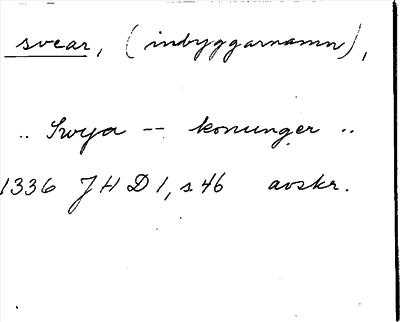 svear, (inbyggarnamn),
.. Swya -- konunger ..
1336 JHD 1, s 46 avskr.